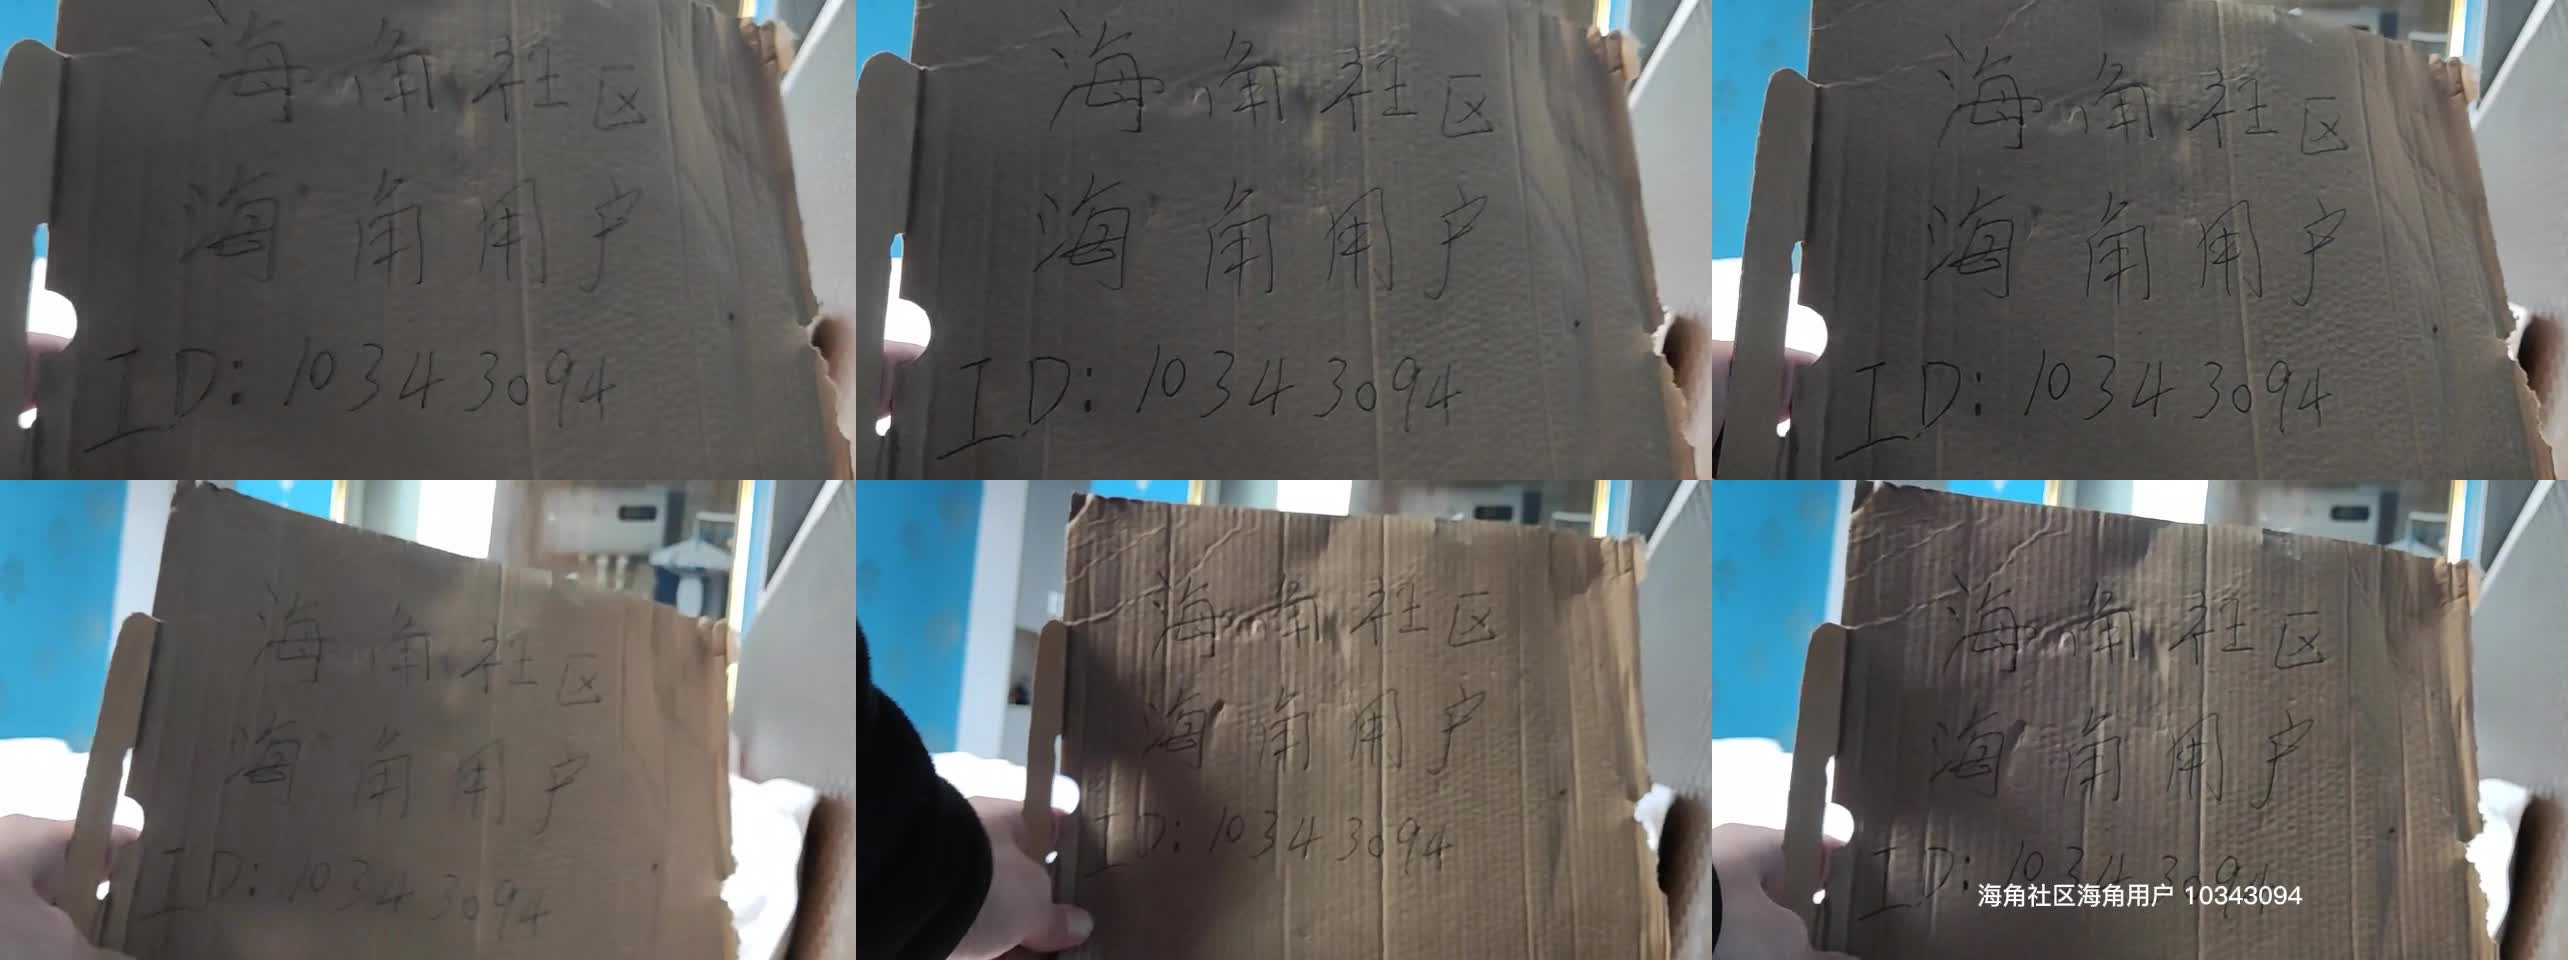 海角社区
海角用户
ID:10343094
海角社区
海角用户
ID:10343094
海角社区
海角用户
ID:10343094
海角社区
海角用户
ID:10343094
海角社区
海角用户
ID:10343094
海角社区
海角用户
ID:10343094
海角社区海角用户 10343094